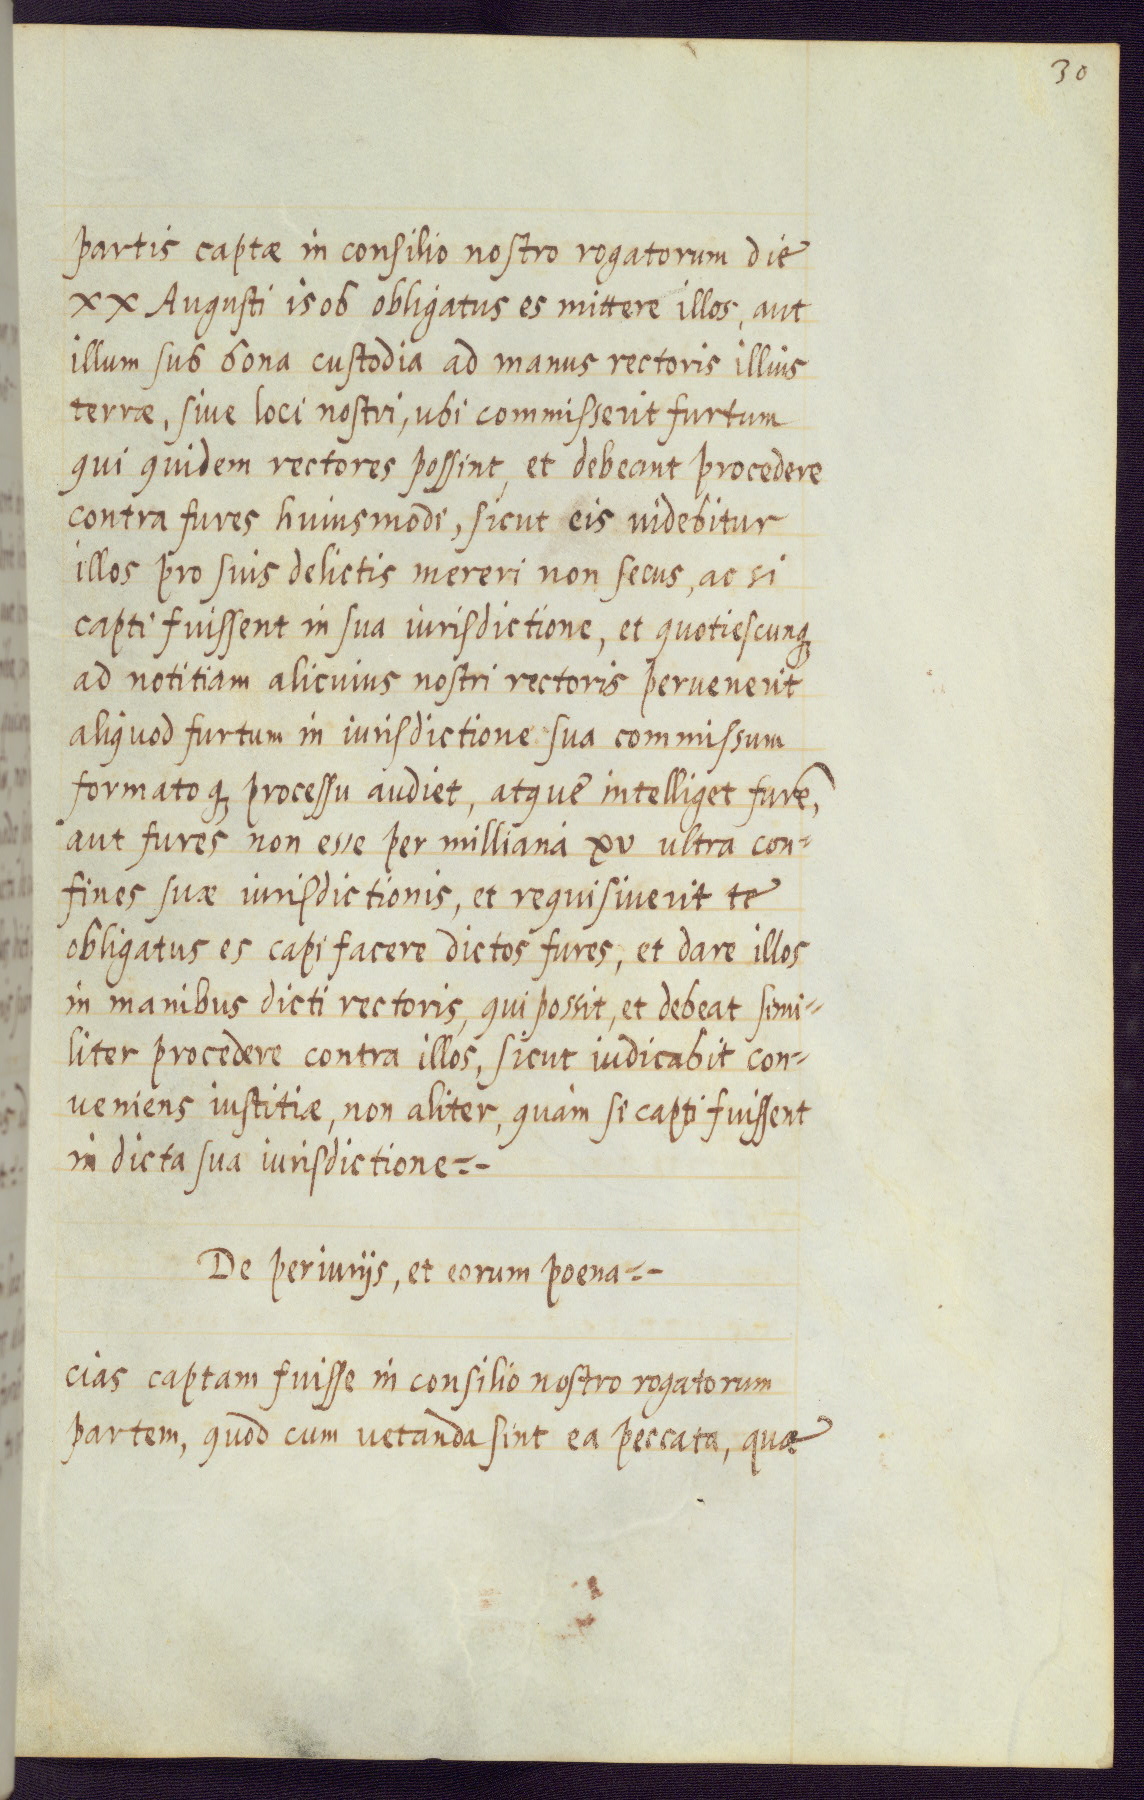 30
partis captæ in consilio nostro rogatorum die
XX Augusti 1506 obligatus es mittere illos, aut
illum sub bona custodia ad manus rectoris illius
terræ, siue loci nostri, ubi commisserit furtum
qui quidem rectores possint, et debeant procedere
contra fures huiusmodi, sicut eis uidebitur
illos pro suis delictis mereri non secus, ac si
capti fuissent in sua iurisdictione, et quotiescunq;
ad notitiam alicuius nostri rectoris peruenerit
aliquod furtum in iurisdictione sua commissum
formatoq; processu audiet, atque intelliget furē,
aut fures non esse per milliaria xv ultra con-
fines suæ iurisdictionis, et requisiuerit te
obligatus es capi facere dictos fures, et dare illos
in manibus dicti rectoris, qui possit, et debeat simi-
liter procedere contra illos, sicut iudicabit con-
ueniens iustitiæ, non aliter, quàm si capti fuissent
in dicta sua iurisdictione=-
De periurijs, et eorum poena=-
cias captam fuisse in consilio nostro rogatorum
partem, quod cum uetanda sint ea peccata, quæ